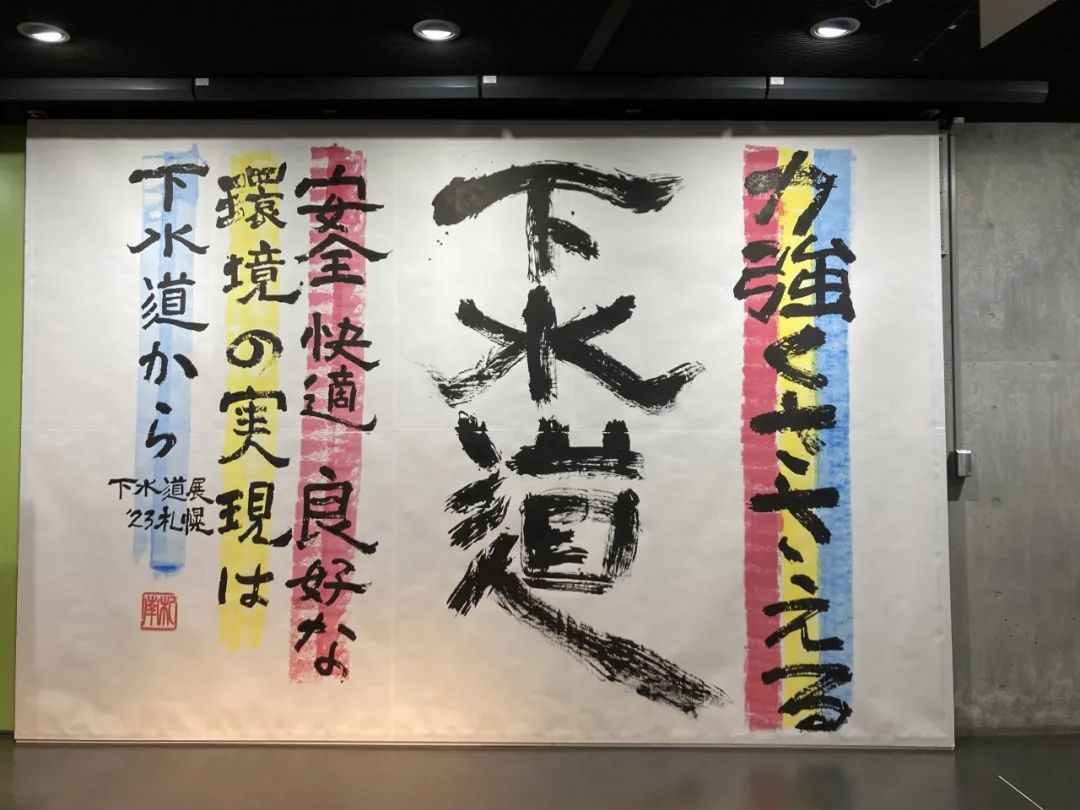 力強くささえる
下水道
安全 快適 良好な
環境の実現は
下水道から
下水道展
'23札幌